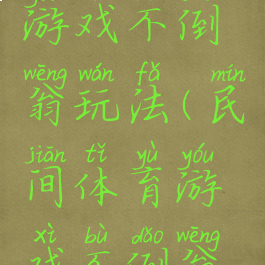 游戏不倒
wēng wán fǎ mín
翁玩法(民
jiān tǐ yù yóu
间体育游
xì bù dǎo wēng
戏不倒翁